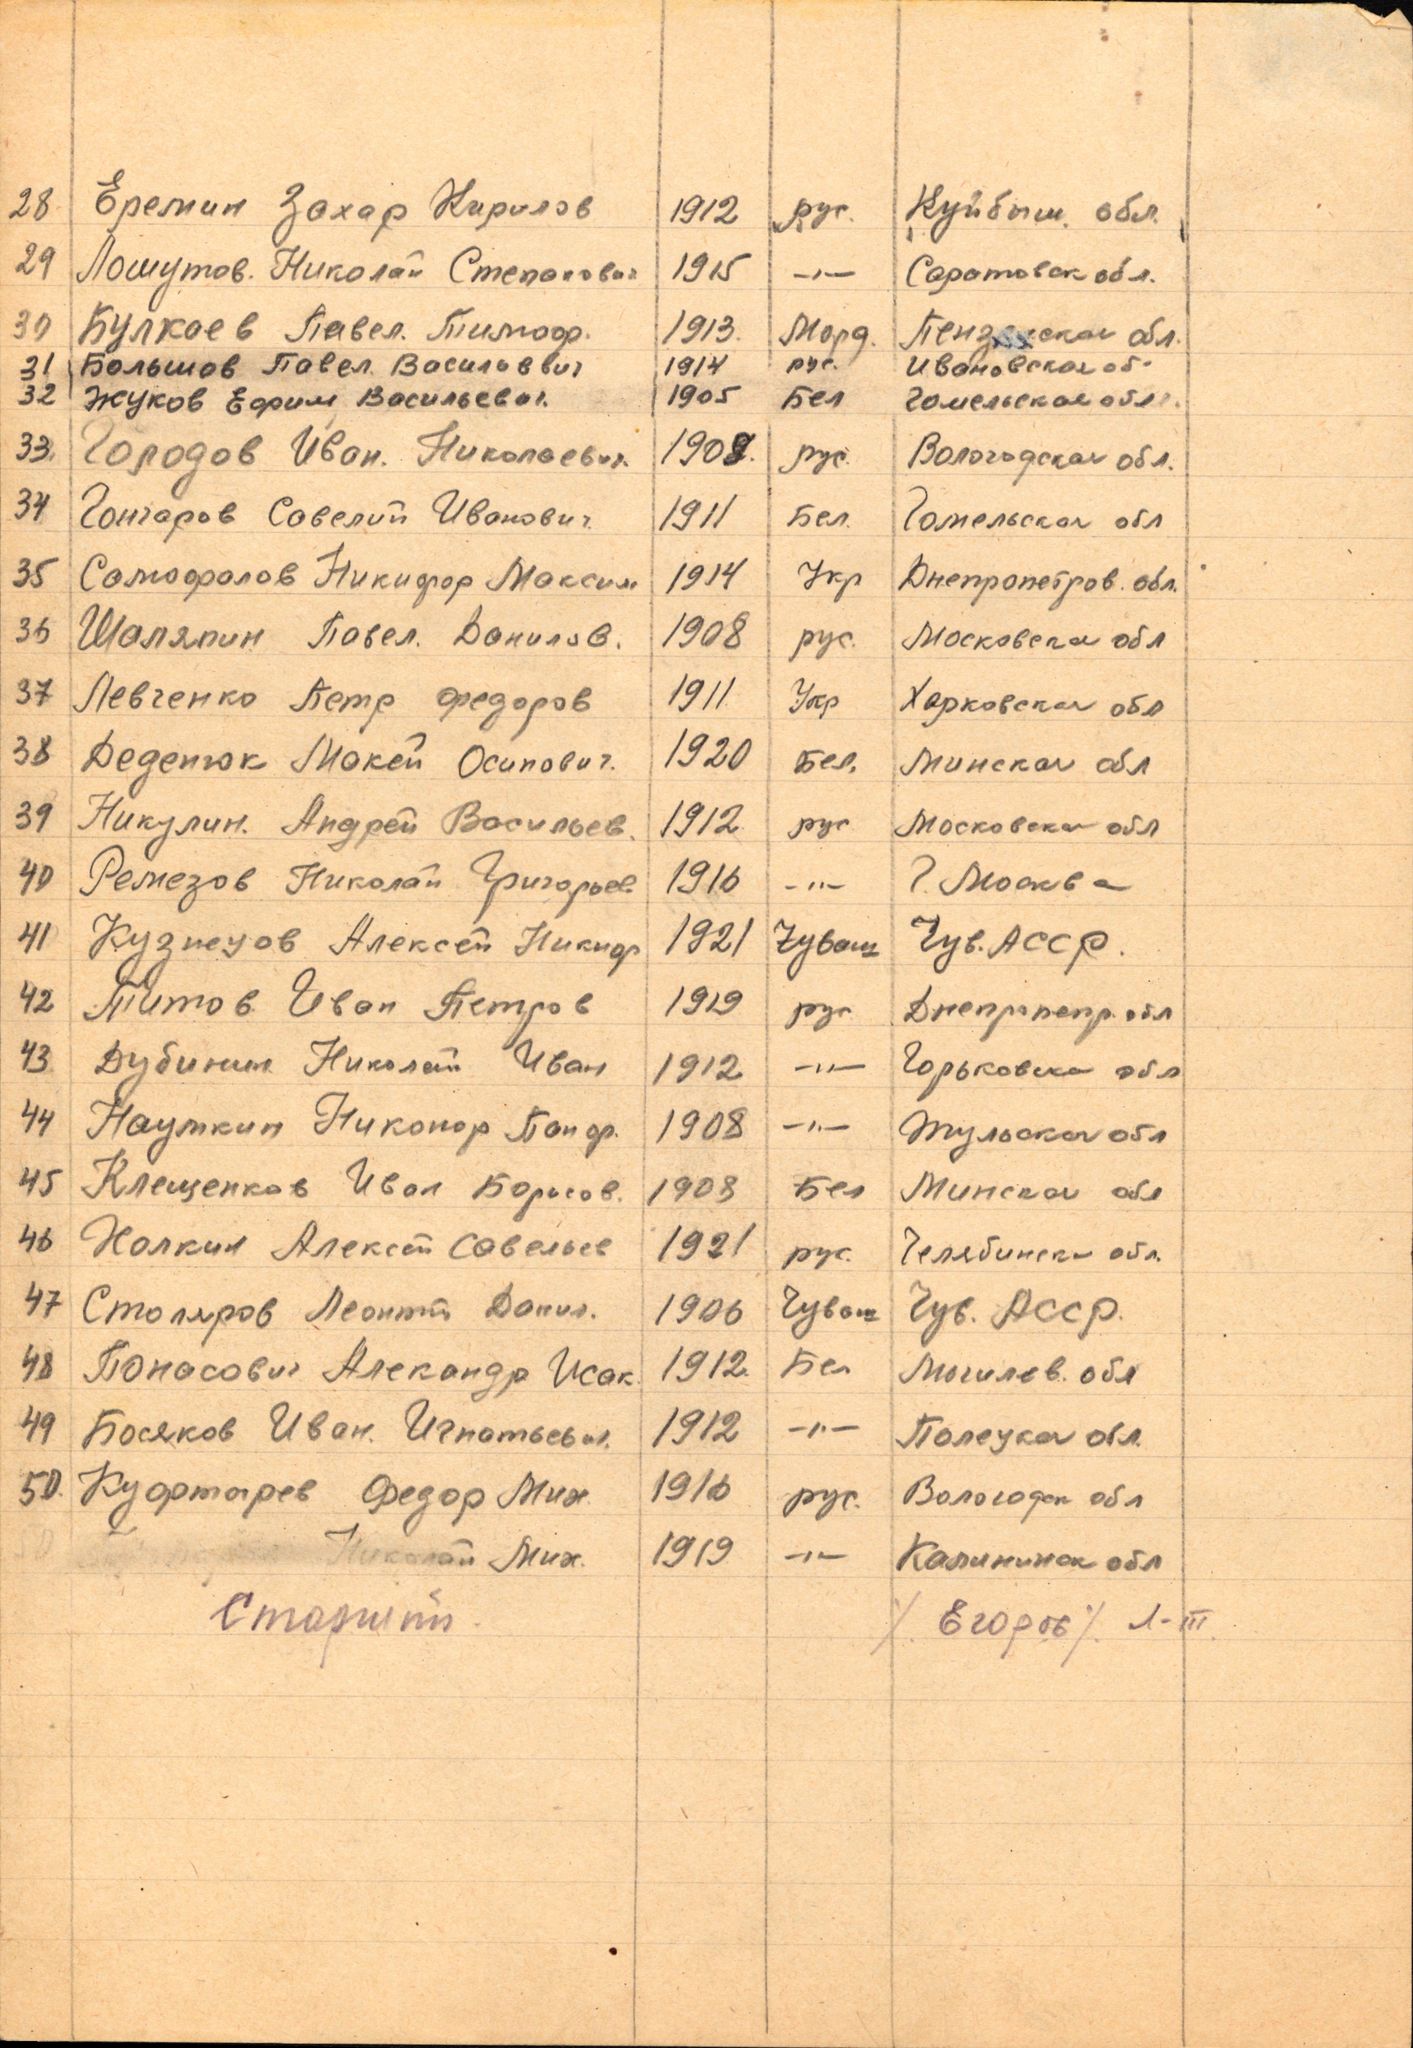 28 Еремин Захар Кирилов 1912 рус. Куйбыш. обл.
29 Лошутов. Николай Степанович 1915 -"- Саратовск обл.
30 Булкаев Павел. Тимоф. 1913. Морд. Пензенская обл.
31 Большов Павел Васильевич 1914 рус. Ивановская об-
32 Жуков Ефим Васильевич. 1905 Бел Гомельская обл.
33. Городов Иван. Николаевич. 1908. рус. Вологодская обл.
34 Гончаров Савелий Иванович 1911 Бел. Гомельская обл
35 Самофалов Никифор Максим 1914 Укр Днепропетров. обл.
36 Шаляпин Павел. Данилов. 1908 рус. Московская обл
37 Левченко Петр Федоров 1911 Укр Харковская обл
38 Деденюк Мокей Осипович. 1920 Бел. Минская обл
39 Никулин. Андрей Васильев. 1912 рус Московская обл
40 Ремезов Николай Григорьев 1916 -"- Г. Москва
41 Кузнецов Алексей Никиф 1921 Чуваш Чув. АССР.
42 Титов Иван Петров 1919 рус Днепропетр. обл
43 Дубинин Николай Иван 1912 -"- Горьковска обл
44 Наумкин Никонор Панф. 1908 -"- Тульская обл
45 Клещенков Иван Борисов. 1908 Бел Минская обл
46 Налкин Алексей Савельев 1921 рус. Челябинска обл.
47 Столяров Леонтий Данил. 1906 Чуваш Чув. АССР.
48 Понасович Александр Исак. 1912. Бел Могилев. обл
49 Босяков Иван. Игнатьевич. 1912 -"- Полецкая обл.
50. Куфтырев Федор Мих. 1916 рус. Вологодск обл
Николай Мих. 1919 -"- Калининск обл
Старший /. Егоров /. Л-т